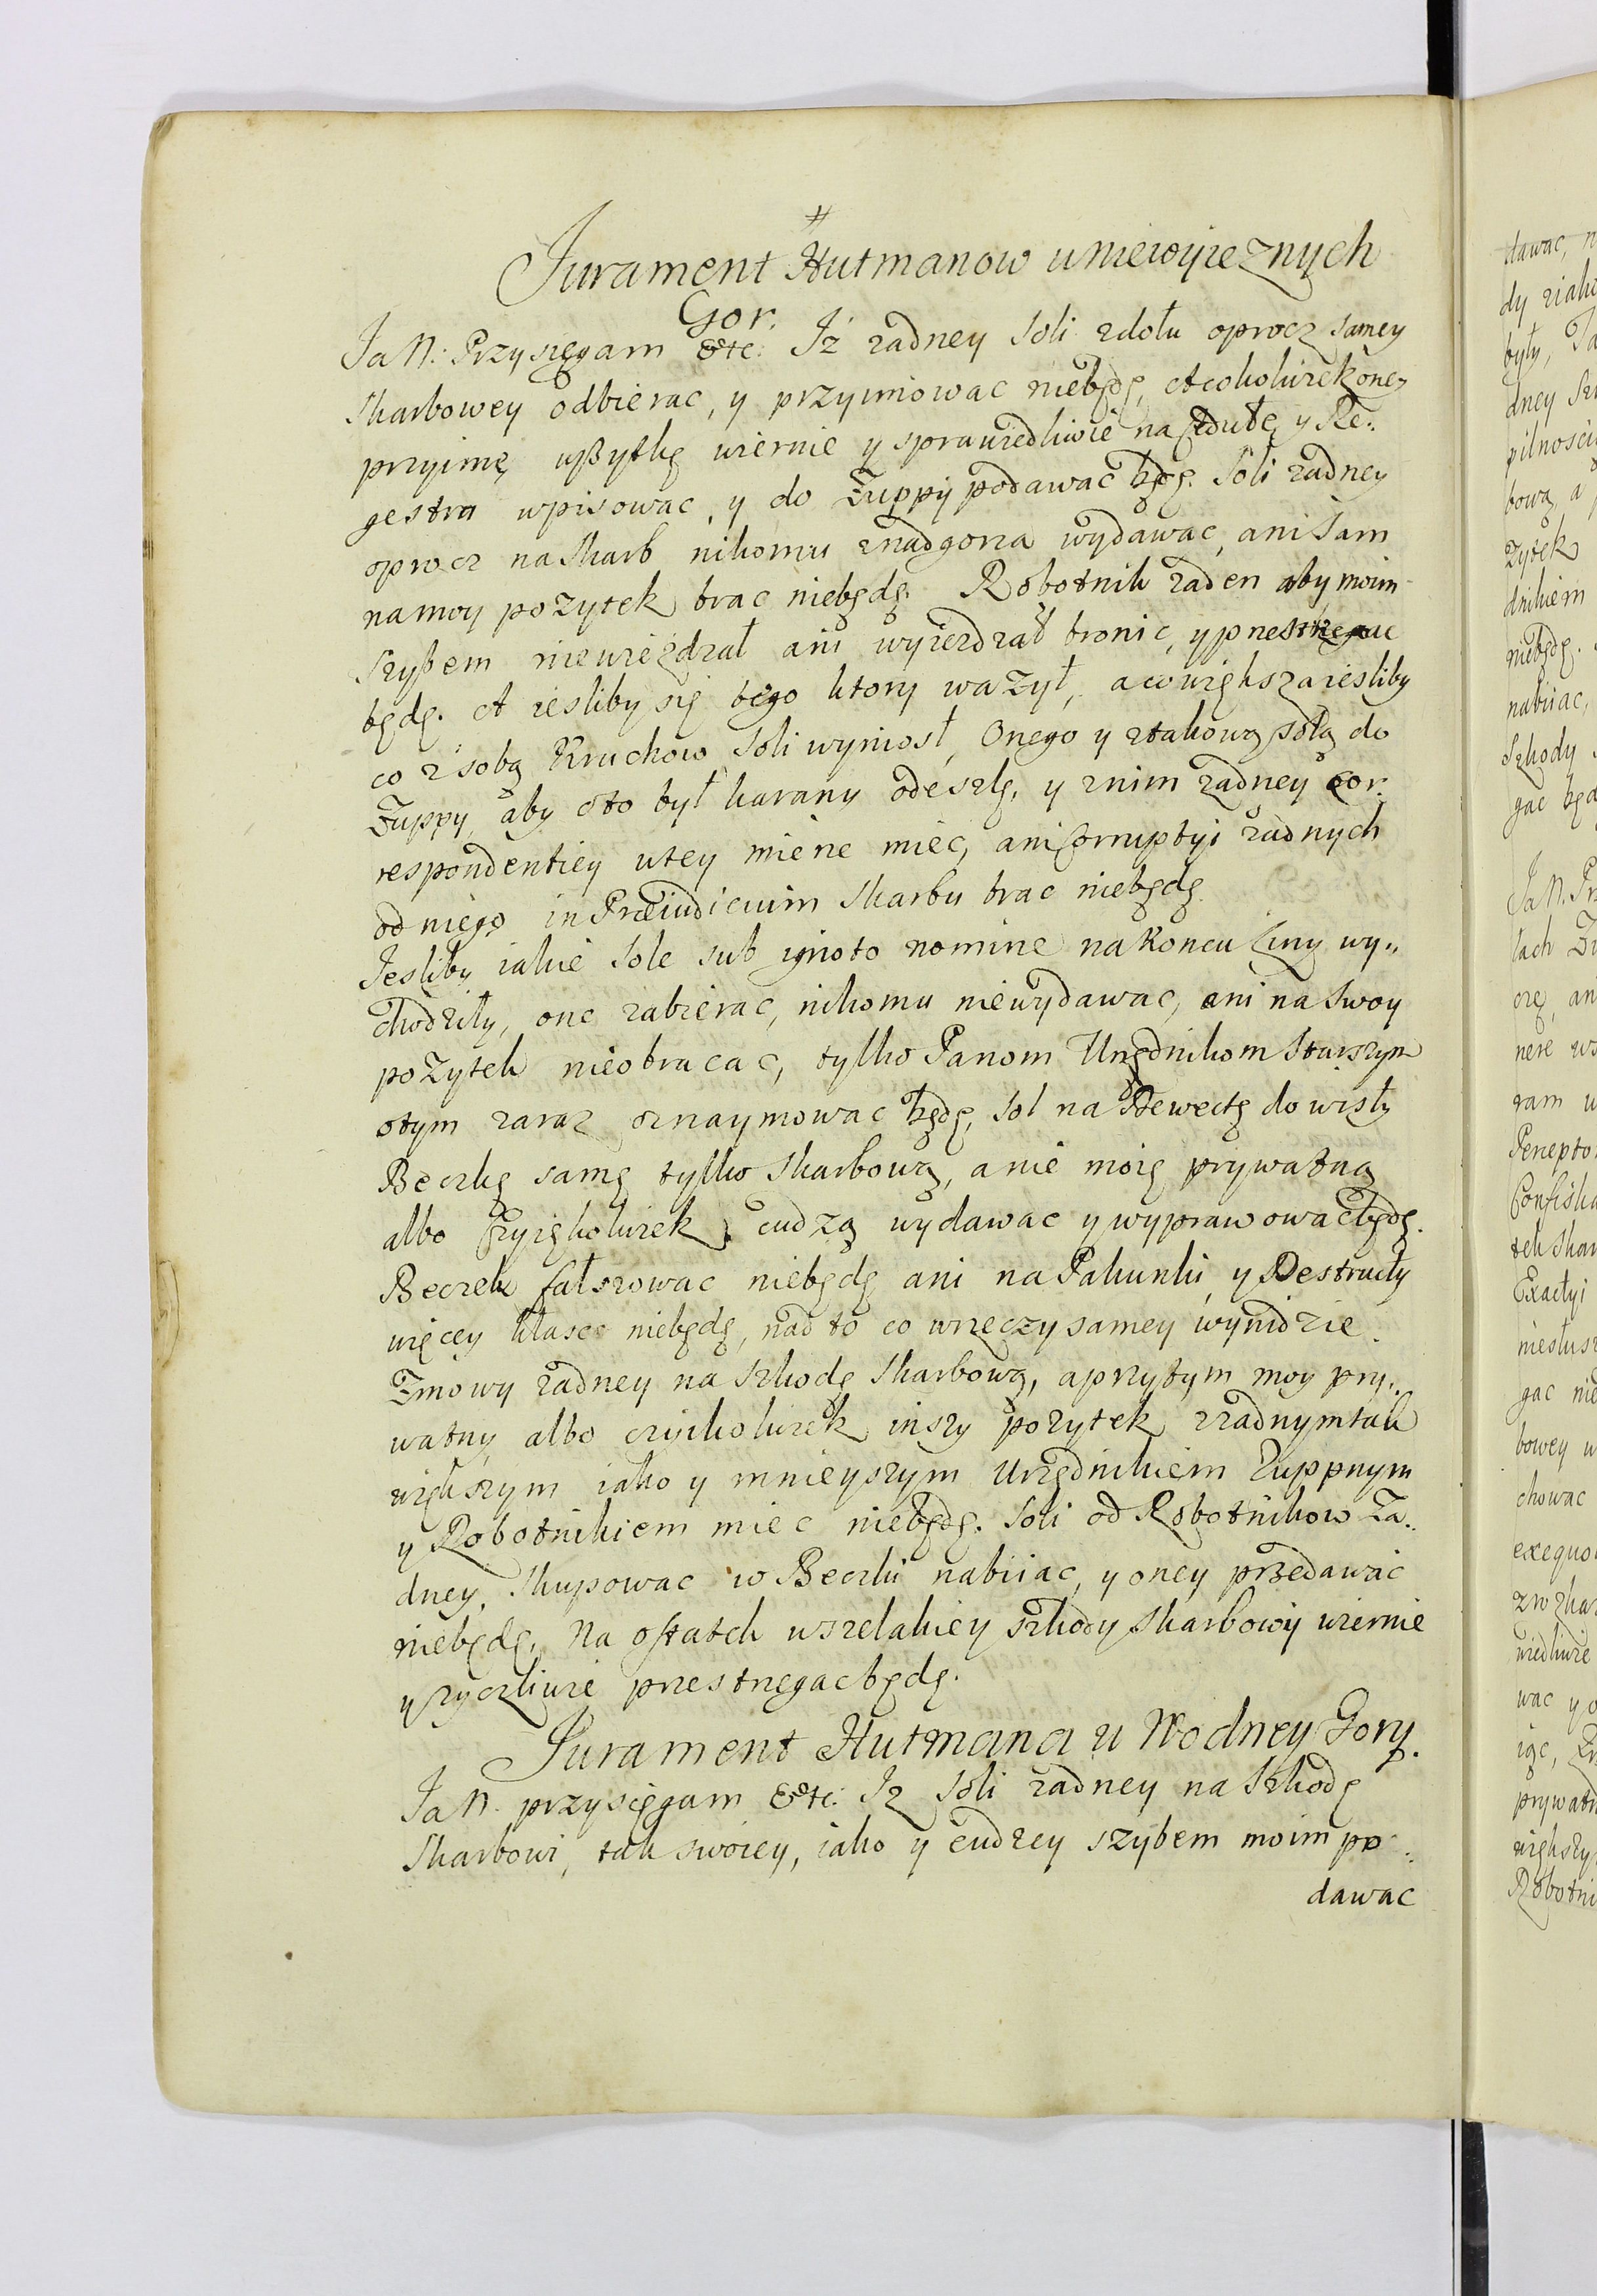 #
Jurament Hutmanow u niewyieznych
Gor.
Ja N: Przysięgam &tc: Iż zadney soli zdołu oprocz samey
skarbowey odbierac, y przyimowac niebędę, Acokolwiek oney
przyimę wszytkę wiernie y sprawiedliwie na Cedułę y Re:
gestra wpisowac, y do Zuppy podawac będę. Soli zadney
oprocz na Skarb nikomu znadgorza wydawac, ani sam
na moy pozytek brac niebędę. Robotnik zaden aby moim
szybem niewiezdzał ani wyiezdzał bronic, y przestrzegac
będę. A iesliby się tego ktory wazył, a co większa iesliby
co z sobą Kruchow soli wyniosł, Onego y ztakową solą do
Zuppy, aby oto był karany odeszlę, y znim zadney cor:
respondentiey wtey mierze miec, ani Corruptyi zadnych
od niego in Præiudicium Skarbu brac niebędę.
Jesliby iakie sole sub ignoto nomine na Koncu Liny wy:
chodziły, one zabierac, nikomu niewydawac, ani na swoy
pozytek nieobracac, tylko Panom Urzędnikom Starszym
otym zaraz oznaymowac będę, sol na Dewectę do wisły
Beczkę samę tylko Skarbową, a nie moię prywatną
albo czyiękolwiek cudzą wydawac y wyprawowac będę.
Beczek fałszowac niebędę ani na Pakunki, y Destructy
więcey kłasc niebędę, nad to co wrzeczy samey wynidzie.
Zmowy zadney na szkodę Skarbową, a przytym moy pry:
watny albo czyikolwiek inszy pozytek zzadnym tak
większym iako y mnieyszym Urzędnikiem Zuppnym
y Robotnikiem miec niebędę. Soli od Robotnikow Za:
dney, skupowac w Beczki nabiiac, y oney przedawac
niebędę, Na ostatek wszelakiey szkody Skarbowy wiernie
y zyczliwie przestrzegac będę.
Jurament Hutmana u Wodney Gory.
Ja N. przysięgam &tc: Iz soli zadney na szkodę
Skarbowi, tak swoiey, iako y cudzey szybem moim po:
dawac